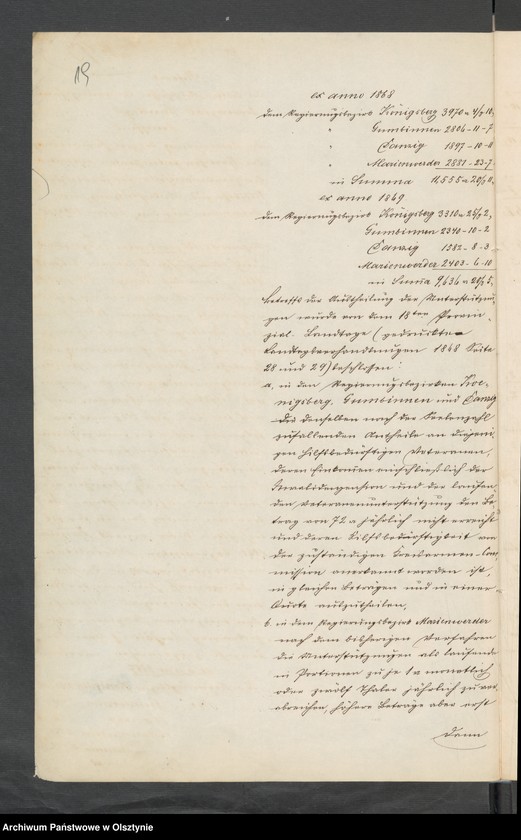 19
ex anno 1868
dem Regierungsbezirk Königsberg 3970
" Gumbinnen 2806-11-7
" Danzig 1897-10-11
" Marienwerder 2881-23-7
in Summa 11,555
ex anno 1869
dem Regierungsbezirk Königsberg 3310
Gumbinnen 2340-10-2
Danzig 1582-8-3
Marienwerder 2403-6-10
in Suma 9,636
betreffs der Vertheilung der Unterstützun-
gen wurde von dem 18ten Provin-
zial Landtage (gedruckte
Landtagsverhandlungen 1868 Seite
28 und 29) beschlossen:
a, in den Regierungsbezirken Koe-
nigsberg, Gumbinnen und Danzig
die denselben nach der Seelenzahl
zufallenden Antheile an diejeni-
gen hilfsbedürftigen Veteranen,
deren Einkomen einschließlich der
Invalidenpension und der laufen-
den Veteranenunterstützung den Be-
trag von 72 jährlich nicht erreicht
und deren Hilfsbedürftigkeit von
der zuständigen Kreisarmen-Com-
mission anerkannt worden ist,
in gleichen Beträgen und in einer
auszutheilen,
b, in dem Regierungsbezirk Marienwerder
nach dem bisherigen Verfahren
die Unterstützungen als laufende
in Portionen zu je 1 monatlich
oder zwölf Thaler jährlich zu ver-
abreichen, höhere Beträge aber erst
dann
Archiwum Państwowe w Olsztynie